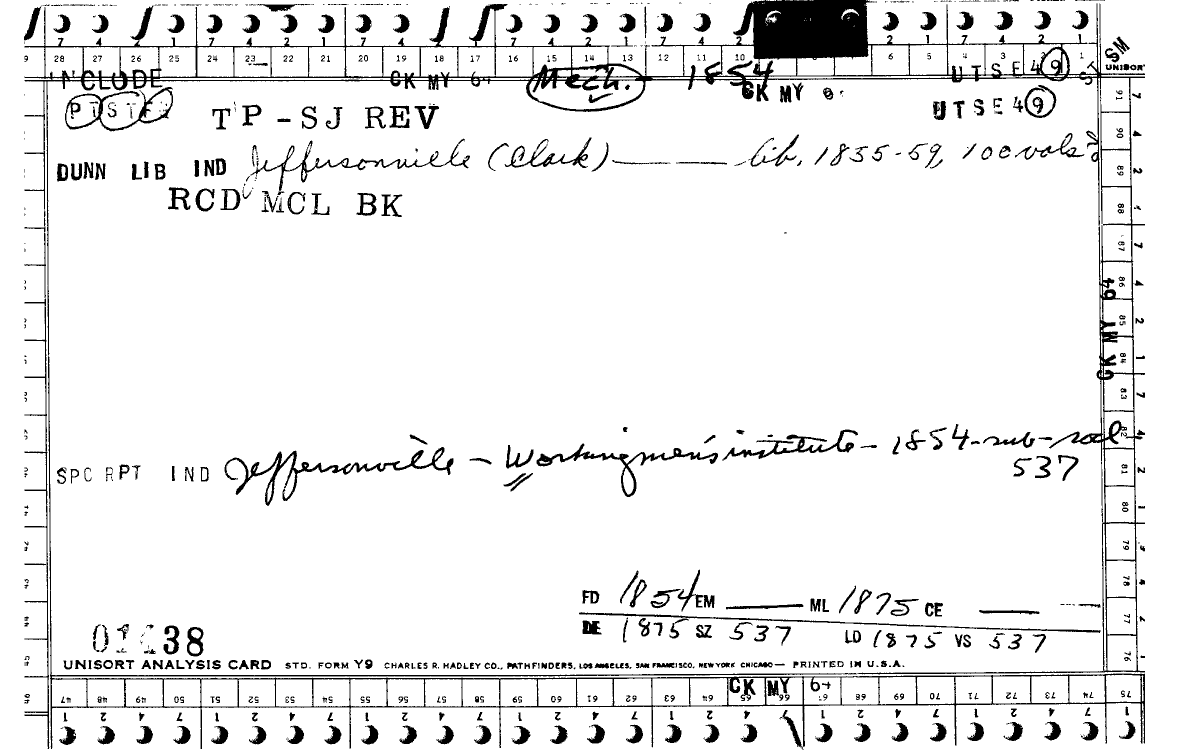 7 4 2 1 7 4 2 1 7 4 2 1 7 4 2 1 7 4 2 7 4 2 1 7 4 2 1
28 27 26 25 24 23 22 21 20 19 18 17 16 15 14 13 12 11 10 6 5 4 3 2 1
SM
UNISORT
INCLODE CK MY 64 Mech. - 1854 UTSE49
CK MY UTSE49
PTSTE TP-SJ REV
DUNN LIB IND Jeffersonville (Clark) —— —— lib, 1855-59, 100 vols
RCD MCL BK
CK MY 64
SPC RPT IND Jeffersonville - Workingmen's institute - 1854-sub-socl
537
FD 1854 EM —— ML 1875 CE ——
DE 1875 SZ 537 LD 1875 VS 537
38
UNISORT ANALYSIS CARD STD. FORM Y9 CHARLES R. HADLEY CO., PATHFINDERS, LOS ANGELES, SAN FRANCISCO, NEW YORK CHICAGO — PRINTED IN U.S.A.
CK MY 64
47 48 49 50 51 52 53 54 55 56 57 58 59 60 61 62 63 64 65 66 67 68 69 70 71 72 73 74 75
1 2 4 7 1 2 4 7 1 2 4 7 1 2 4 7 1 2 4 1 2 4 7 1 2 4 7 1